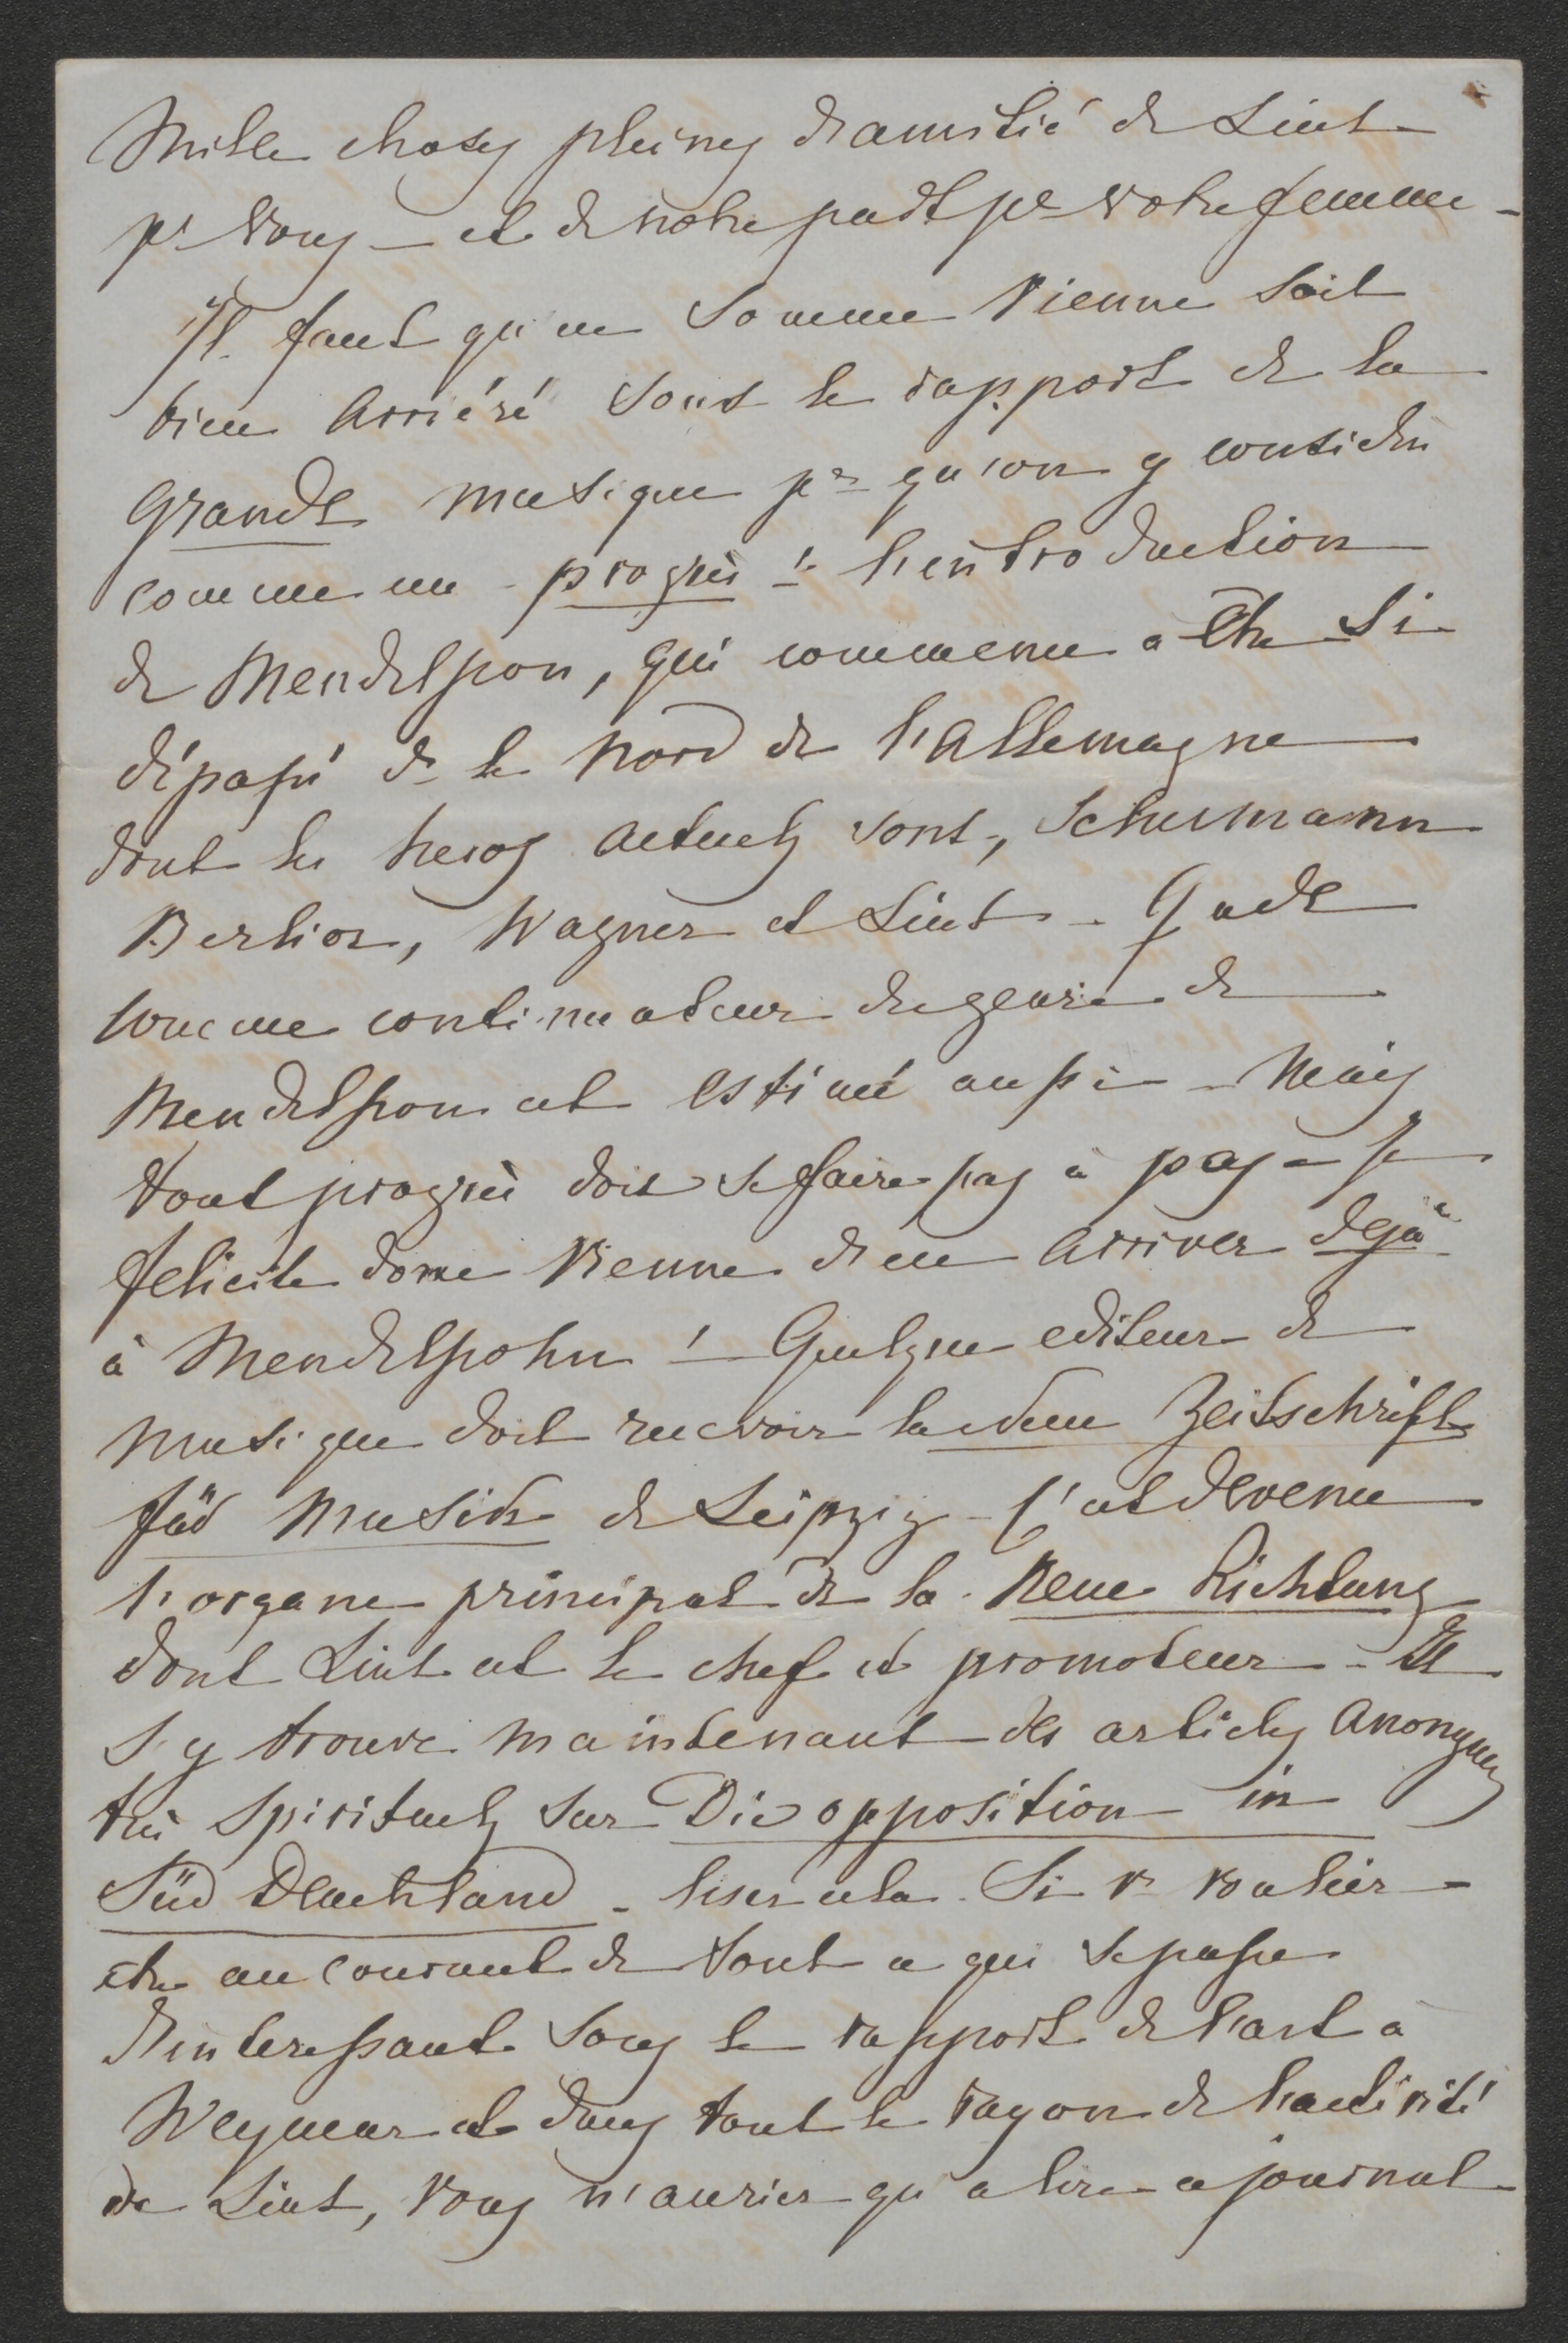 Mille choses pleines d'amitié de Liszt
pr Vous — et de notre part pr votre femme —
Il faut qu'en somme Vienne soit
bien arriéré sous le rapport de la
grande musique pr qu'on y considère
comme un progrès ! l'introduction
de Mendelsson, qui commence a être si
dépassé ds le Nord de l'Allemagne
dont les heros actuels sont, Schumann
Berlioz, Wagner et Liszt — Gade
comme continuateur du genre de
Mendelsson est estimé aussi — Mais
tout progrès doit se faire pas à pas — Je
felicite donc Vienne d'en arriver dejà
à Mendelssohn ! — Quelque editeur de
musique doit recevoir la Neue Zeitschrift
für Musik de Leipzig — C'est devenu
l'organe principal de la Neue Richtung
dont Liszt est le chef et promoteur — Il
s'y trouve maintenant des articles anonymes
très spirituels sur Die opposition in
Süd Deutchland — lisez cela. Si vs vouliez
etre au courant de tout ce qui se passe
d'interessant sous le rapport de l'art à
Weymar et dans tout le rayon de l'activité
de Liszt, vous n'auriez qu'a lire ce journal